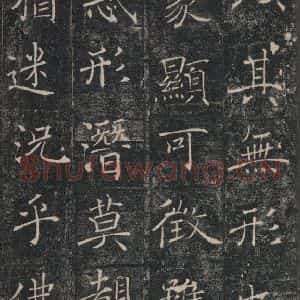 其無形也
象顯可徵雖
惑形潛莫覩
猶迷況乎佛
Shufawang.CN